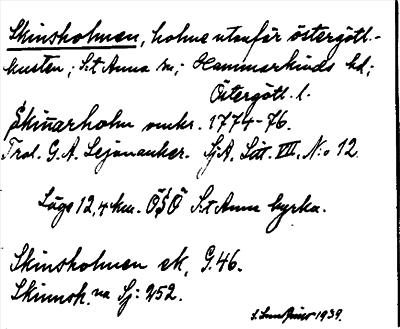 Skinsholmen, holme utanför östergötl.-
kusten; S:t Anna sn; Hammarkinds hd;
Östergötl. l.
Skinarholm omkr. 1774-76.
Trol. G. A. Lejonanker. SjA, Litt. VII, N:o 12.
Läge 12,4 km. ÖSÖ S:t Anna kyrka.
Skinsholmen ek, G. 46.
Skinnsh. na Sj: 252.
1939.